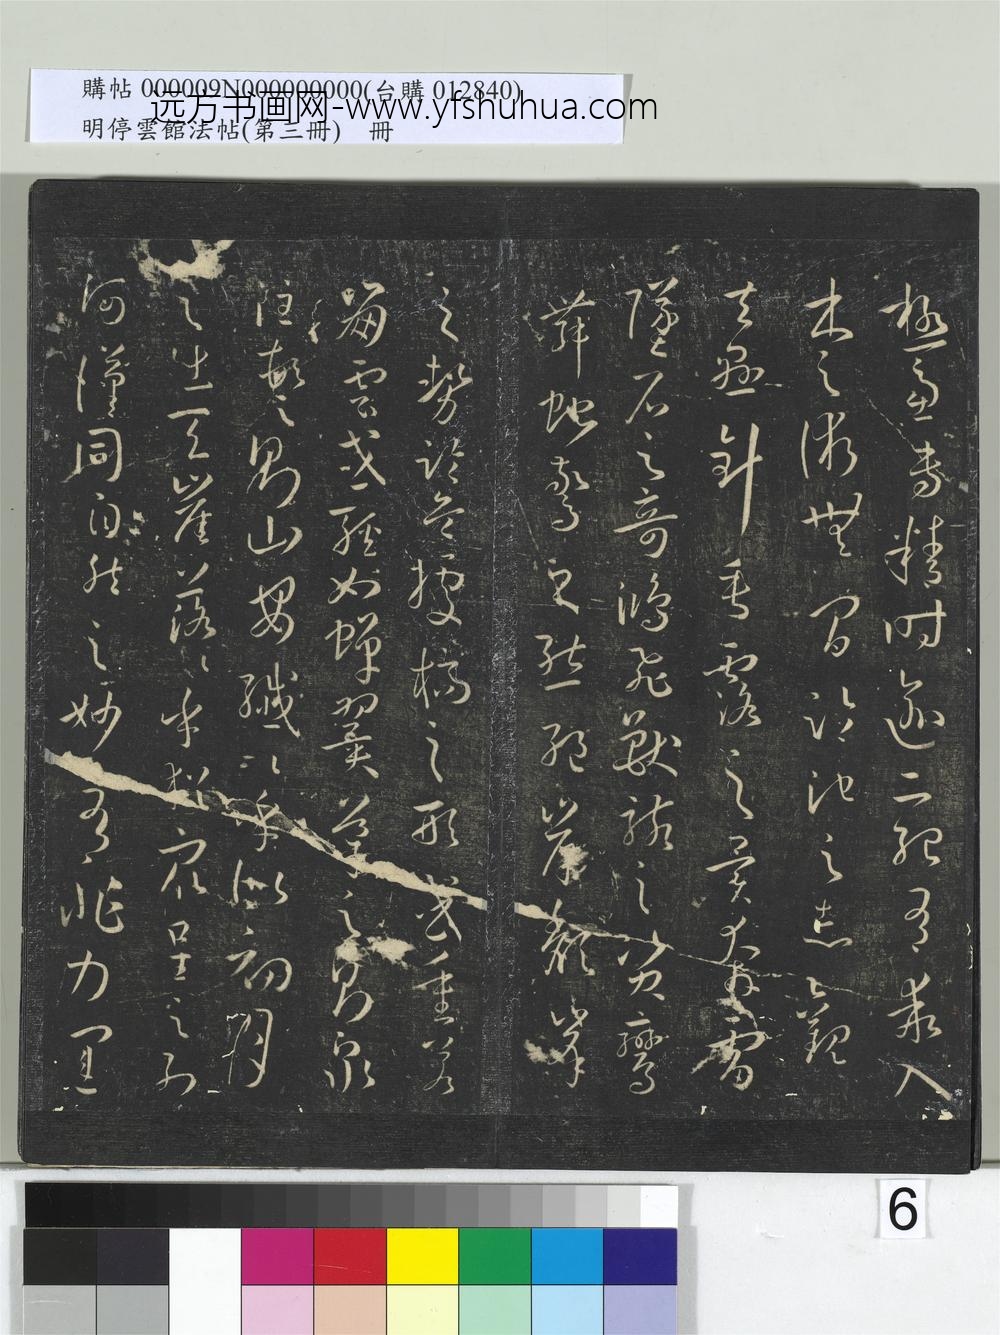 購帖 000009N000000000(台購 012840)
远方书画网-www.yfshuhua.com
明停雲館法帖(第三冊) 冊
極慮專精時逾二紀有乖入
木之術無間臨池之志觀
夫懸針垂露之異奔雷
墜石之奇鴻飛獸駭之資鸞
舞蛇驚之態絕岸頹峯
之勢臨危據槁之形或重若
崩雲或輕如蟬翼導之則泉
注頓之則山安纖纖乎似初月
之出天崖落落乎猶眾星之列
河漢同自然之妙有非力運
6